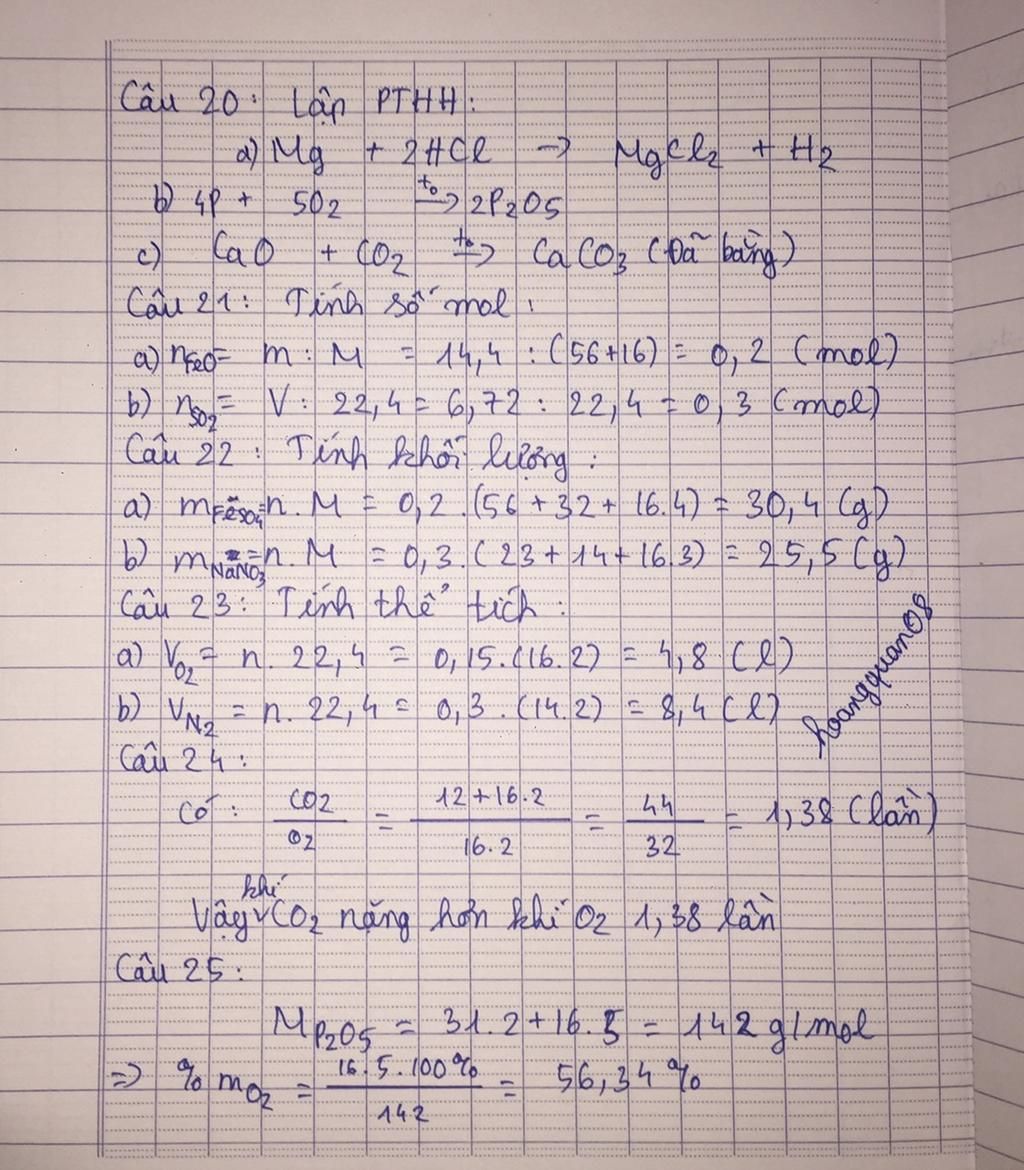 Câu 20: Lập PTHH:
a) Mg + 2HCl -> MgCl2 + H2
b) 4P + 5O2 t°-> 2P2O5
c) CaO + CO2 t°-> CaCO3 (Đã bằng)
Câu 21: Tính số mol:
a) nFeO = m : M = 14,4 : (56+16) = 0,2 (mol)
b) nSO2 = V : 22,4 = 6,72 : 22,4 = 0,3 (mol)
Câu 22: Tính khối lượng:
a) mFeSO4 = n. M = 0,2.(56+32+16.4) = 30,4 (g)
b) mNaNO3 = n. M = 0,3.(23+14+16.3) = 25,5 (g)
Câu 23: Tính thể tích:
a) VO2 = n. 22,4 = 0,15.(16.2) = 4,8 (l)
b) VN2 = n. 22,4 = 0,3.(14.2) = 8,4 (l)
hoangquan08
Câu 24:
Có: CO2/O2 = 12+16.2/16.2 = 44/32 = 1,38 (lần)
Vậy khí CO2 nặng hơn khí O2 1,38 lần
Câu 25:
MP2O5 = 31.2+16.5 = 142 g/mol
=> % mO2 = 16.5.100%/142 = 56,34 %